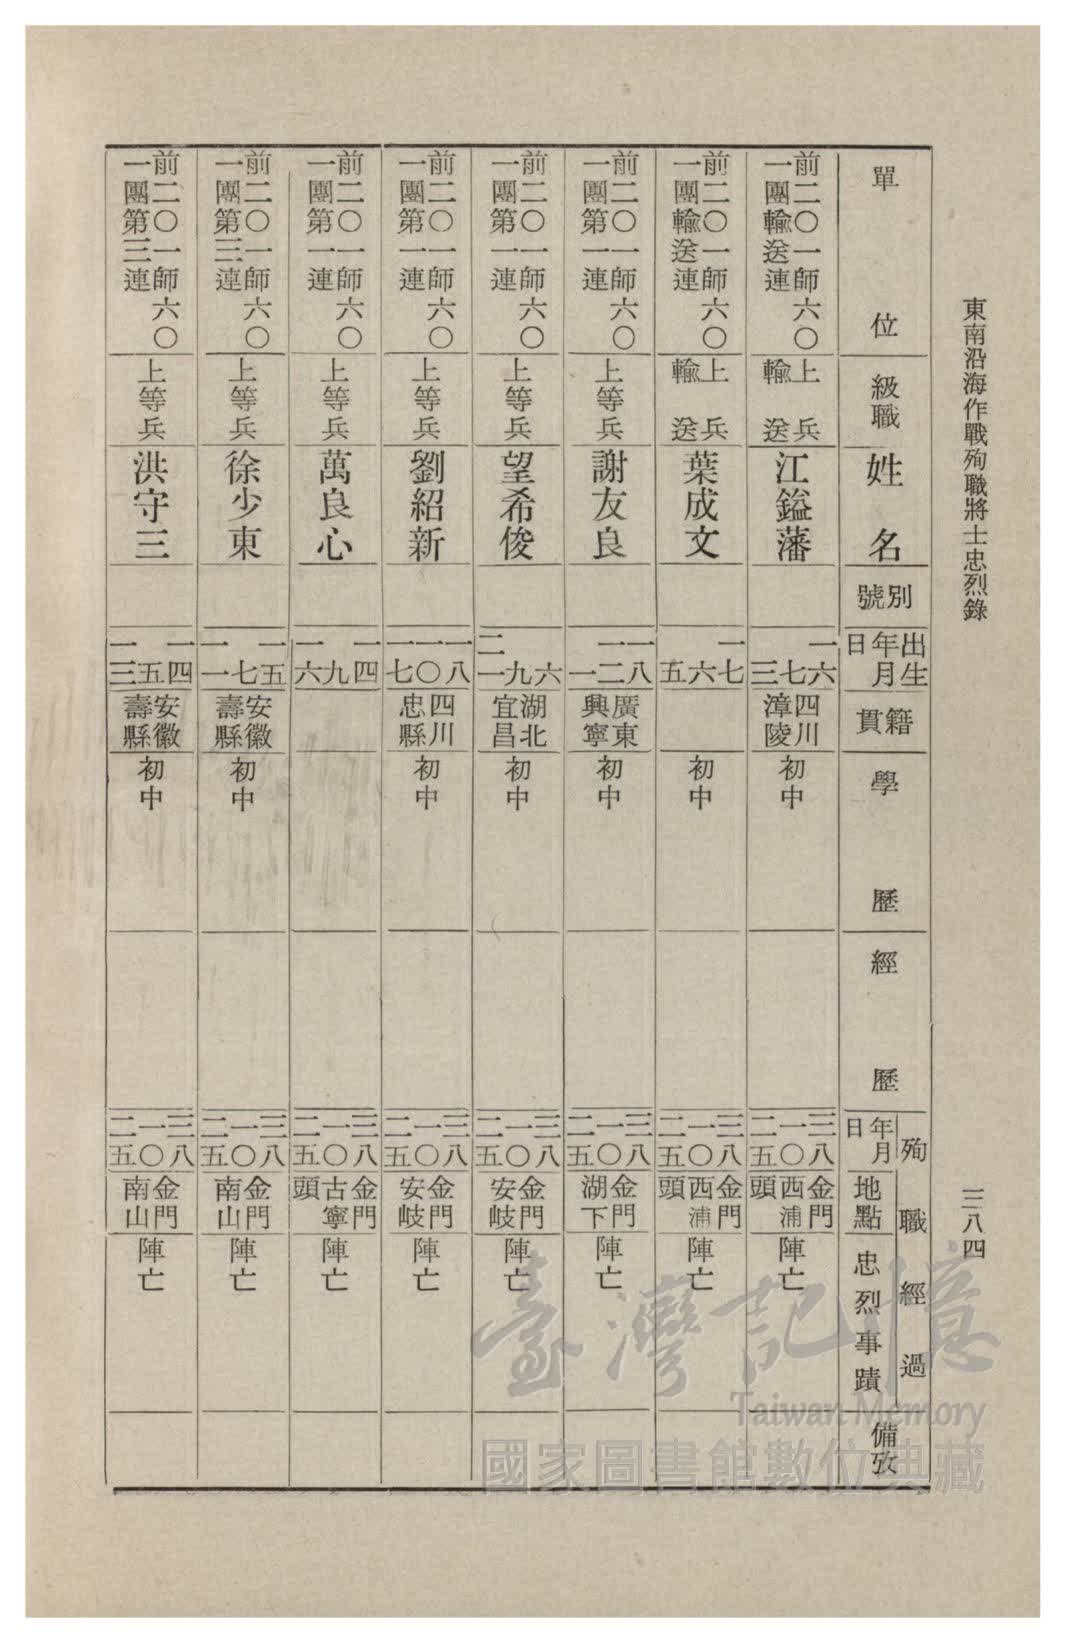 東南沿海作戰殉職將士忠烈錄
三八四
單位
級職
姓名
別號
出生
年月
日
籍貫
學歷
經歷
殉職經過
年月
日
地點
忠烈事蹟
備攷
前二〇一師六〇
一團輸送連
上兵
輸送
江鎰藩
一六
七
三
四川
漳陵
初中
三八
一〇
二五
金門
西浦
頭
陣亡
前二〇一師六〇
一團輸送連
上兵
輸送
葉成文
一七
六
五
初中
三八
一〇
二五
金門
西浦
頭
陣亡
前二〇一師六〇
一團第一連
上等兵
謝友良
一八
一二
一
廣東
興寧
初中
三八
一〇
二五
金門
湖下
陣亡
前二〇一師六〇
一團第一連
上等兵
望希俊
六
九
二一
湖北
宜昌
初中
三八
一〇
二五
金門
安岐
陣亡
前二〇一師六〇
一團第一連
上等兵
劉紹新
一八
一〇
一七
四川
忠縣
初中
三八
一〇
二五
金門
安岐
陣亡
前二〇一師六〇
一團第一連
上等兵
萬良心
一四
九
一六
三八
一〇
二五
金門
古寧
頭
陣亡
前二〇一師六〇
一團第三連
上等兵
徐少東
一五
七
一一
安徽
壽縣
初中
三八
一〇
二五
金門
南山
陣亡
前二〇一師六〇
一團第三連
上等兵
洪守三
一四
五
一三
安徽
壽縣
初中
三八
一〇
二五
金門
南山
陣亡
臺灣記憶
Taiwan Memory
國家圖書館數位典藏